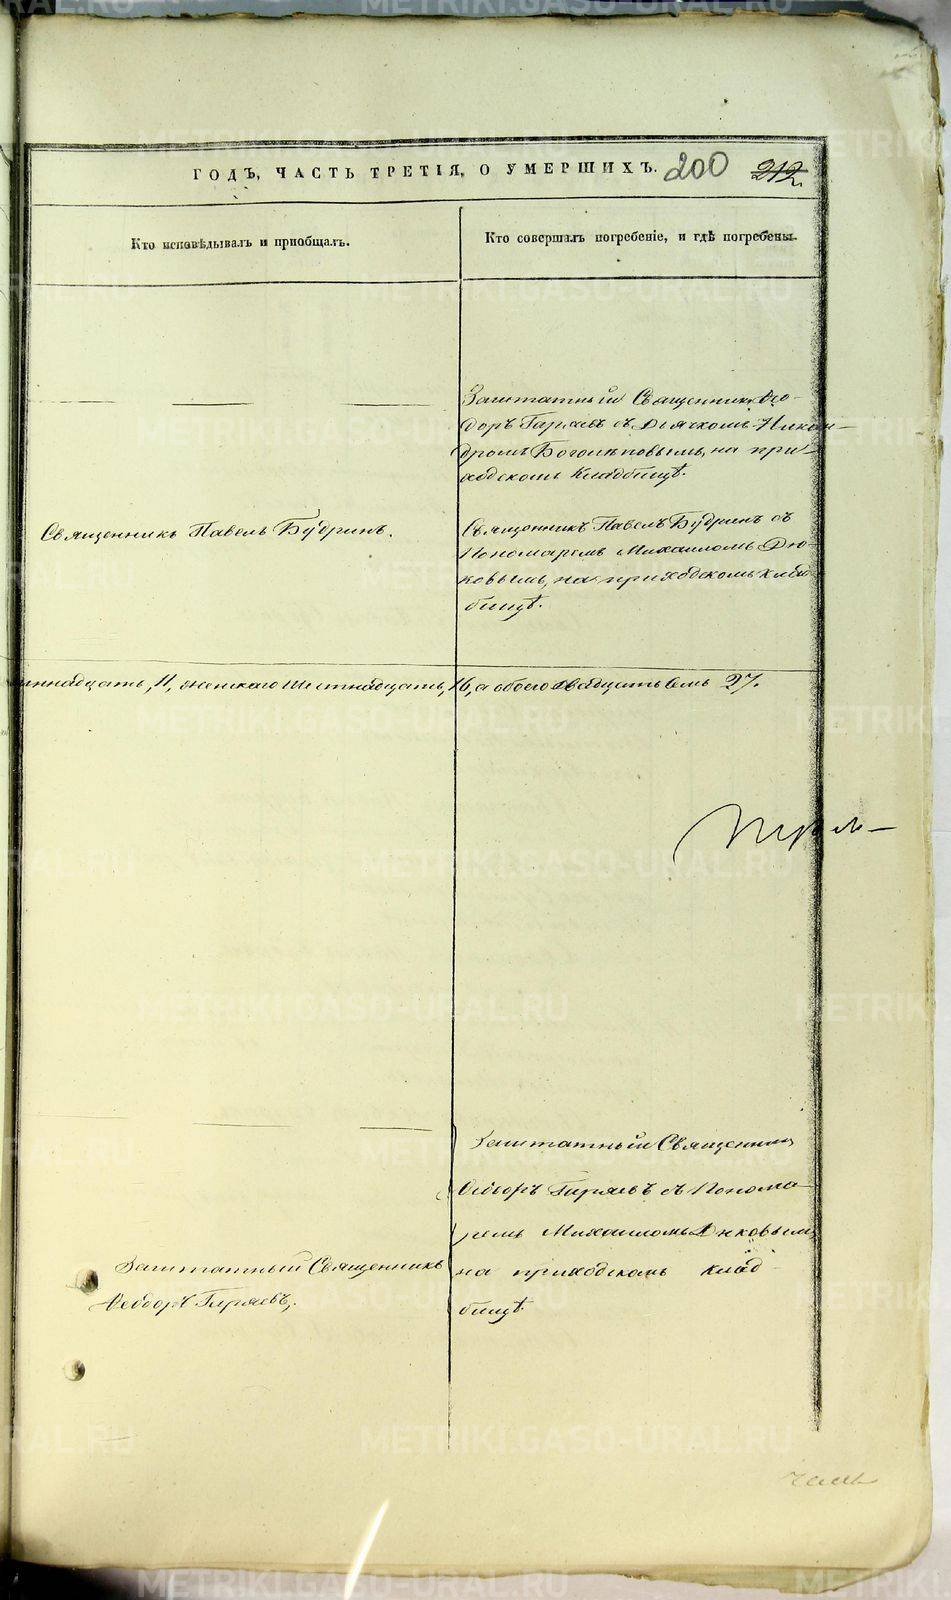 ГОДЪ, ЧАСТЬ ТРЕТІЯ, О УМЕРШИХЪ. 200 212
Кто исповѣдывалъ и пріобщалъ.
Кто совершалъ погребеніе, и гдѣ погребены.
Заштатный Священникъ Ѳео-
доръ Гиряевъ съ Дьячкомъ Никан-
дромъ Боголѣповымъ, на при-
ходскомъ кладбищѣ.
Священникъ Павелъ Будринъ.
Священникъ Павелъ Будринъ съ
Пономаремъ Михаиломъ Дю-
ковымъ, на приходскомъ клад-
бищѣ.
иннадцать, 11, женскаго шестнадцать, 16, а обоего двадцать семь 27.
Заштатный Священникъ
Ѳеодоръ Гиряевъ съ Понома-
ремъ Михаиломъ Дюковымъ,
на приходскомъ клад-
бищѣ.
Заштатный Священникъ
Ѳеодоръ Гиряевъ.
METRIKI.GASO-URAL.RU